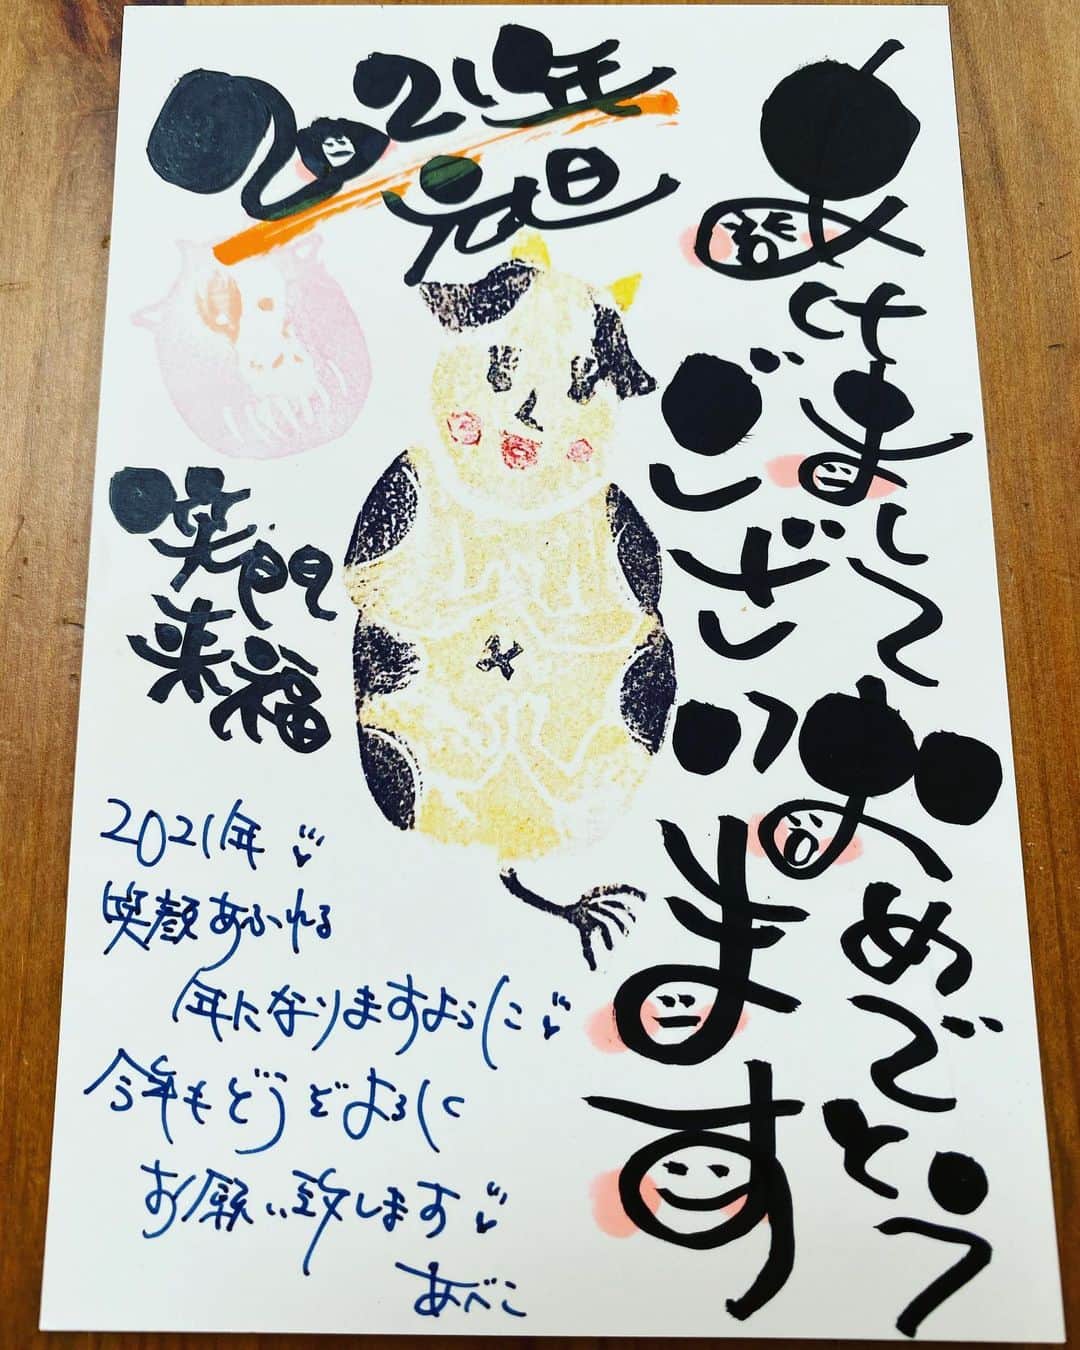 あけまして
おめでとう
ございます
2021年
元旦
笑門
来福
2021年
笑顔あふれる
年になりますように
今年もどうぞよろしく
お願い致します
あべこ